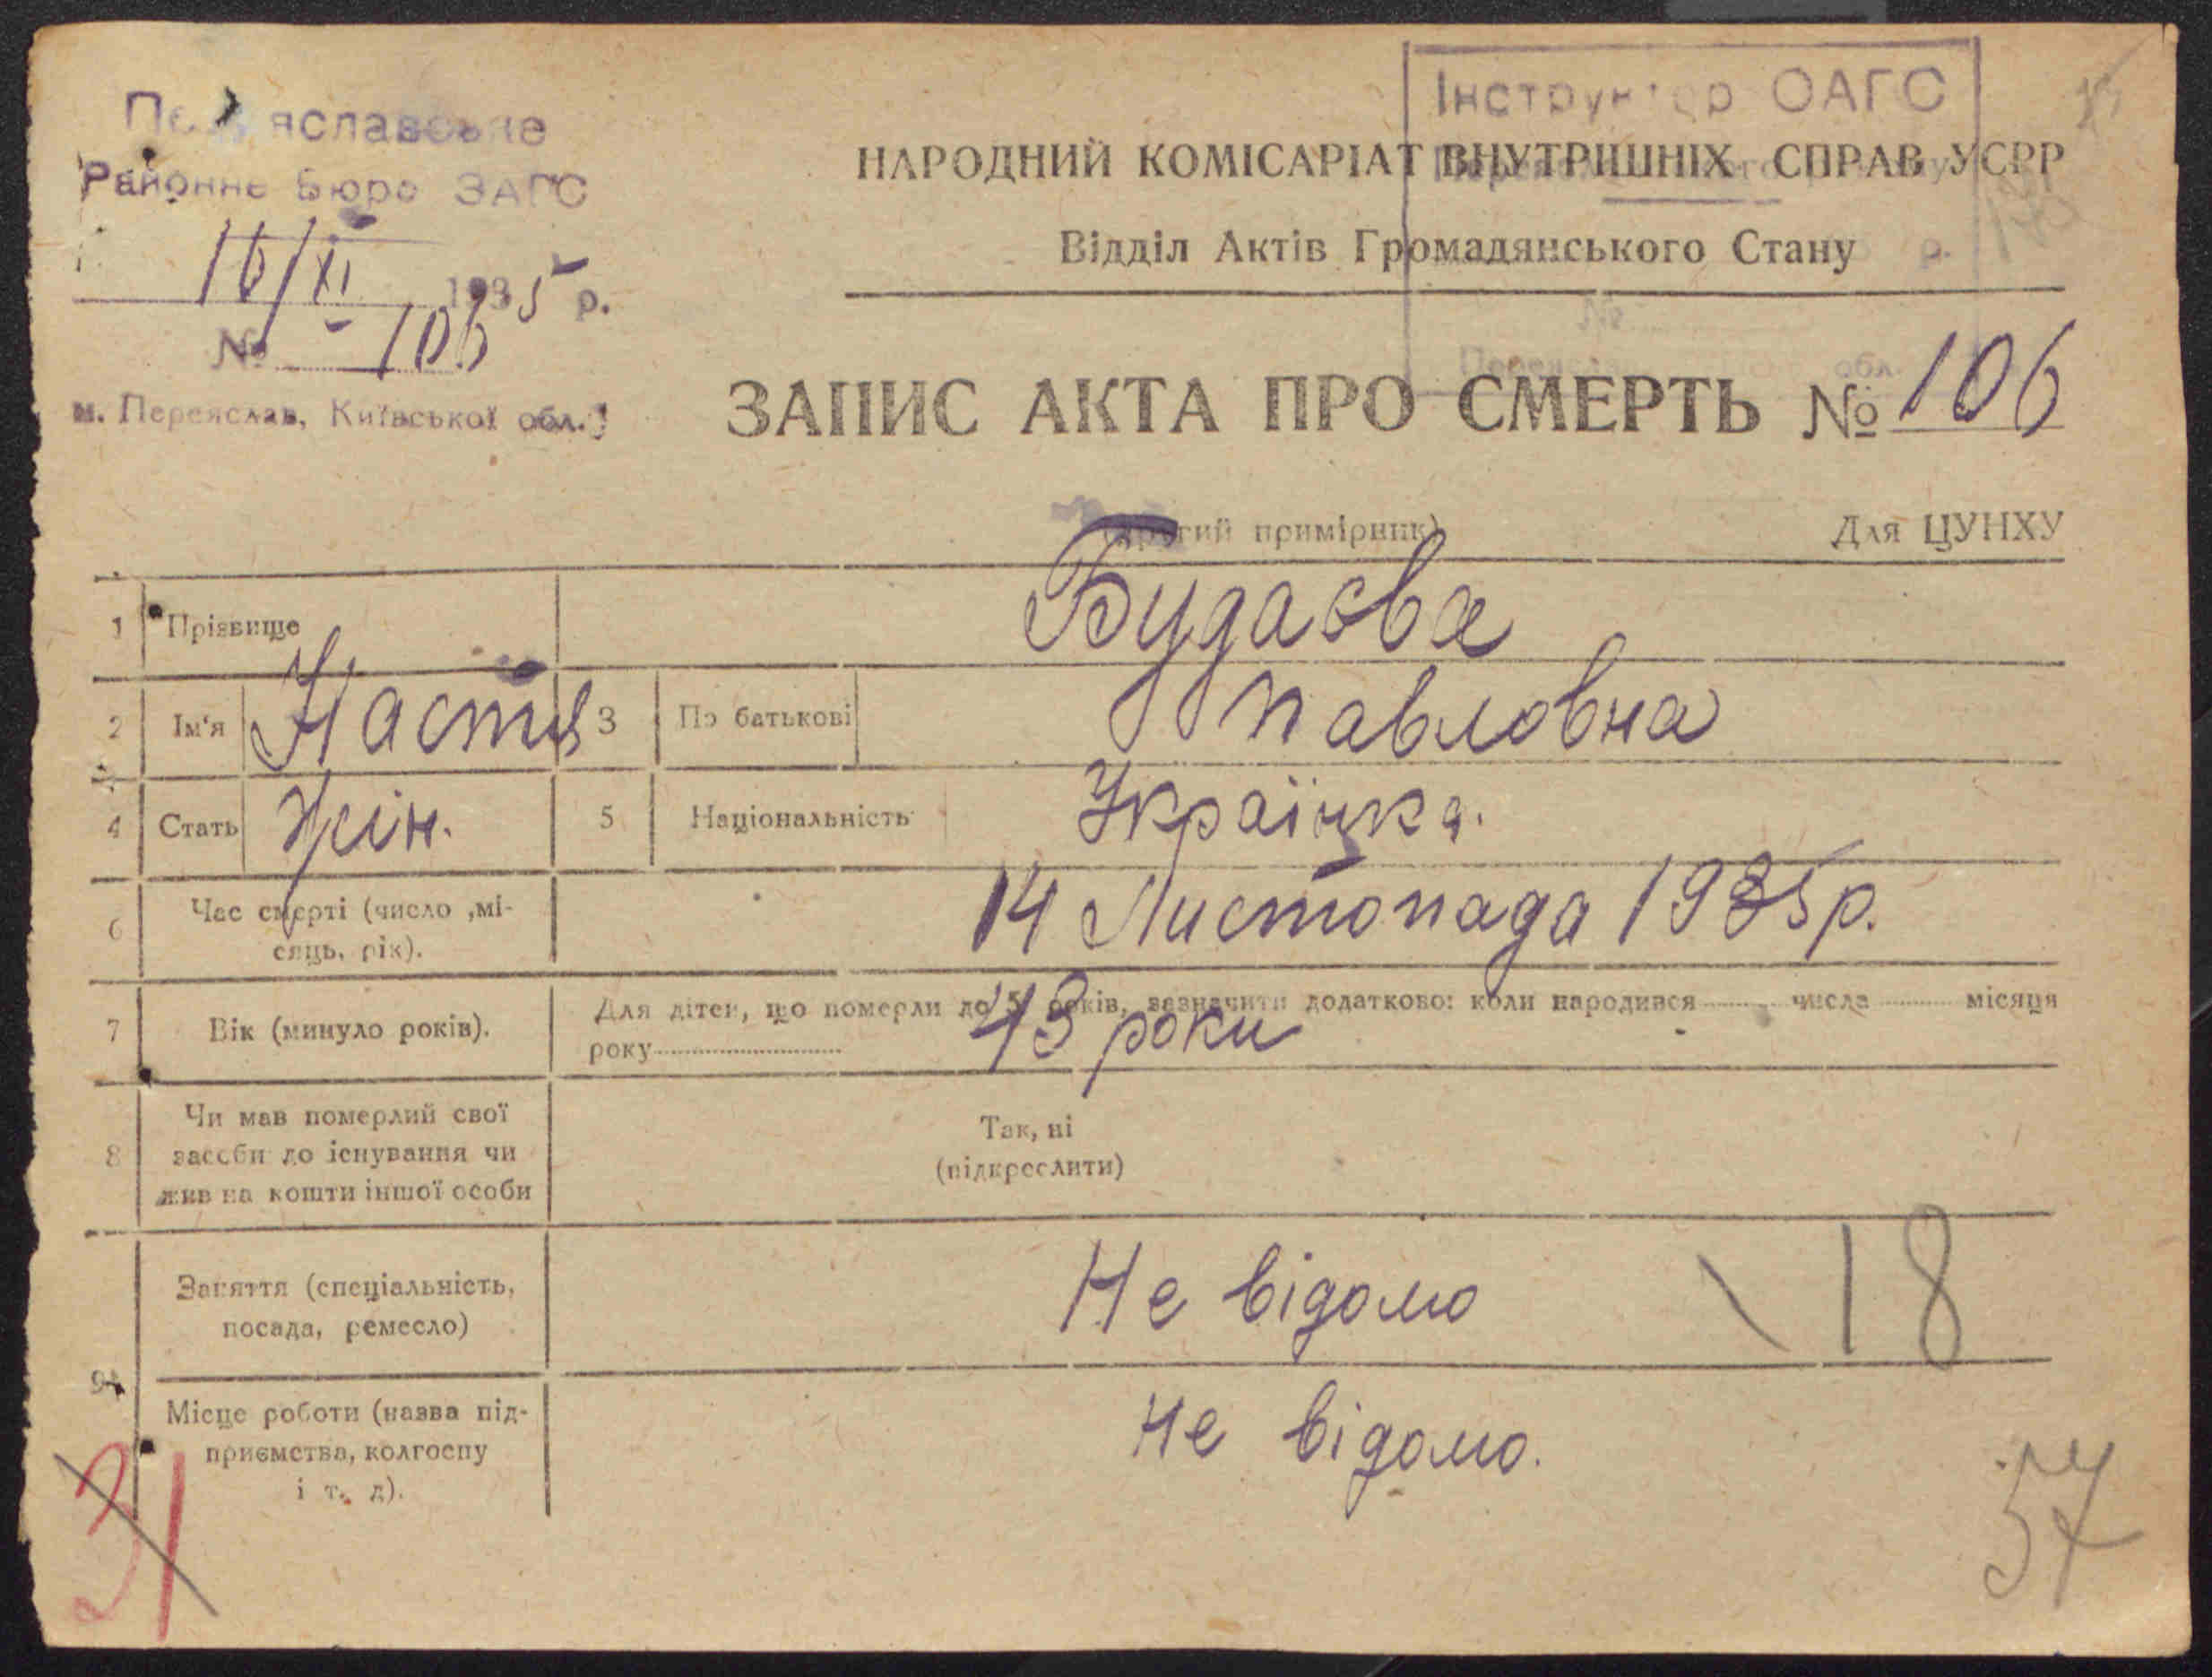 Районне Бюро ЗАГС
16/XI 1935 р.
№ 106
м. Переяслав, Київської обл.
Інструктор ОАГС
НАРОДНИЙ КОМІСАРІАТ ВНУТРІШНІХ СПРАВ УСРР
Відділ Актів Громадянського Стану
ЗАПИС АКТА ПРО СМЕРТЬ № 106
(Другий примірник)
Для ЦУНХУ
1 Прізвище Будаєва
2 Ім'я Настя 3 По батькові Павловна
4 Стать Жін. 5 Національність Українка.
6 Час смерті (число ,місяць, рік). 14 Листопада 1935 р.
7 Вік (минуло років). Для дітей, що померли до 5 років, зазначити додатково: коли народився числа місяця
року 43 роки
8 Чи мав померлий свої
засоби до існування чи
жив на кошти іншої особи
Так, ні
(підкреслити)
Заняття (спеціальність,
посада, ремесло)
Не відомо
18
9
Місце роботи (назва під-
приємства, колгоспу
і т. д).
Не відомо.
31
57